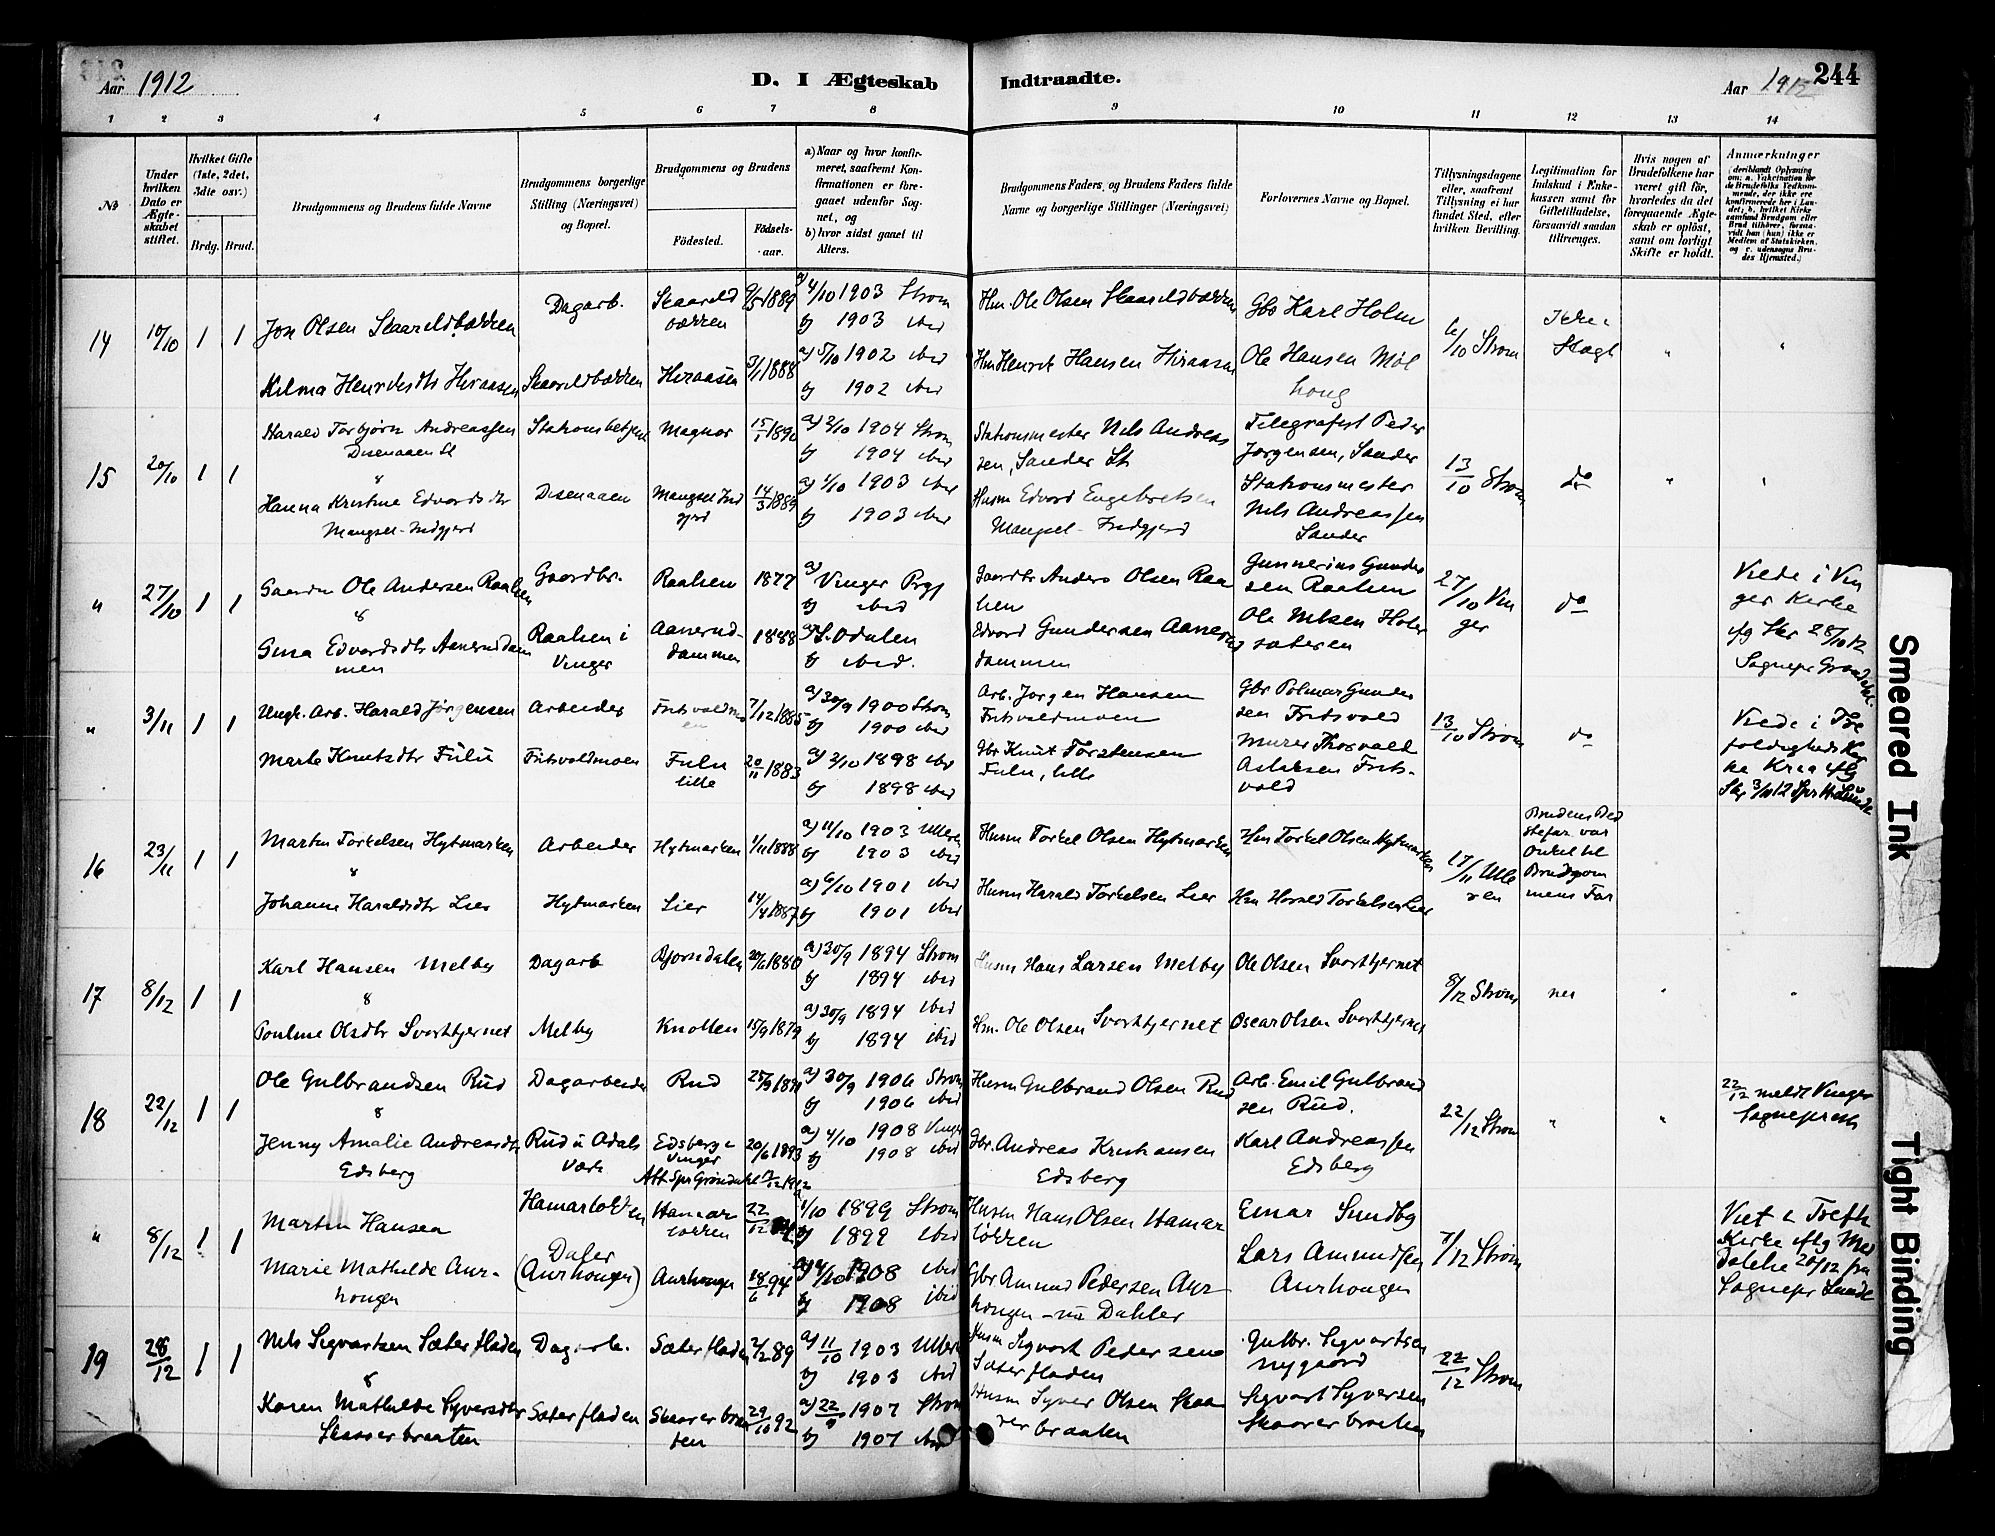 Aar 1912
D. I Ægteskab Indtraadte.
Aar 1912
244
1 2 3 4 5 6 7 8 9 10 11 12 13 14
No
Under hvilken Dato er Ægteskabet stiftet.
Hvilket Gifte (1ste, 2det, 3die osv.)
Brdg. Brud.
Brudgommens og Brudens fulde Navne
Brudgommens borgerlige Stilling (Næringsvei) og Bopæl.
Brudgommens og Brudens
Fødested.
Fødselsaar.
a) Naar og hvor konfirmeret, saafremt Konfirmationen er foregaaet udenfor Sognet, og
b) hvor sidst gaaet til Alters.
Brudgommens Faders og Brudens Faders fulde Navne og borgerlige Stillinger (Næringsvei)
Forlovernes Navne og Bopæl.
Tillysningsdagene eller, saafremt Tillysning ei har fundet Sted, efter hvilken Bevilling.
Legitimation for Indskud i Enkekassen samt for Giftetilladelse, forsaavidt saadan tiltrænges.
Hvis nogen af Brudefolkene har været gift før, hvorledes da det foregaaende Ægteskab er opløst, samt om lovligt Skifte er holdt.
Anmærkninger
14 10/10 1 1
Jon Olsen Skaarildbækken
Dagarb.
Skaarild bækken
9/5 1889
a) 4/10 1903 Strøm
b) 1903 ibid
Hm. Ole Olsen Skaarildbækken
Gbr Karl Holm
6/10 Strøm
Ikke i Slægt
Hilma Henriksdtr Hiraasen
Skaarildbækken
Hiraasen
3/11 1888
a) 5/10 1902 ibid
b) 1902 ibid
Hm Henrik Hansen Hiraasen
Ole Hansen Møl
haug
15 20/10 1 1
Harald Torbjørn Andreassen
Disenaaen St
Stationsbetjent
Magnor
15/1 1890
a) 2/10 1904 Strøm
b) 1904 ibid
Stationsmester Nils Andreas
sen, Sander St.
Telegrafist Peder
Jørgensen, Sander
13/10 Strøm
do
Hanna Kristine Edvardsdtr
Mangset-Indgjerd
Disenaaen
Mangset Ind
gjerd
14/3 1889
a) 1/10 1903 ibid
b) 1903 ibid
Husm Edvard Engebretsen
Mangset-Indgjerd
Stationsmester
Nils Andreassen
Sander
" 27/10 1 1
Gaardbr Ole Andersen Raalsen
Gaardbr.
Raalsen
1877
a) Vinger Prgj
b) ibid
Gaardbr Anders Olsen Raa
lsen
Gunnerius Gunder
sen Raalsen
27/10 Vin
ger
do
Viede i Vin
ger Kirke
iflg Skr 28/10 12
Sognepr Grøndahl
Gina Edvardsdtr Aanerud dam
men
Raalsen i
Vinger
Aanerud-
dammen
1888
a) S. Odalen
b) ibid.
Edvard Gundersen Aanerud
dammen
Ole Nilsen Holer
sæteren
" 3/11 1 1
Ungk. Arb. Harald Jørgensen
Arbeider
Fritsvoldmo
en
7/12 1885
a) 30/9 1900 Strøm
b) 1900 ibid
Arb. Jørgen Hansen
Fritsvoldmoen
Gbr Polmar Gunder
sen Fritsvold
13/10 Strøm
do
Viede i Tre
foldigheds Kir
ke Kr.a iflg
Skr 3/11 12 Spr Hr Lunde
Marte Knutsdtr Fulu
Fritsvoldmoen
Fulu
lille
20/11 1883
a) 2/10 1898 ibid
b) 1898 ibid
Gbr Knut Torstensen
Fulu, lille
Murer Thorvald
Aslaksen Frits-
vold
16 23/11 1 1
Martin Torkelsen Hytmarken
Arbeider
Hytmarken
1/11 1888
a) 11/10 1903 Ulleren
b) 1903 ibid
Husm Torkel Olsen Hytmarken
Hm Torkel Olsen Hytmarken
17/11 Ulle
ren
Brudens Bed
stefar var
Onkel til
Brudgom
mens Far
Johanne Haraldsdtr Lier
Hytmarken
Lier
14/4 1887
a) 6/10 1901 ibid
b) 1901 ibid
Husm Harald Torkelsen Lier
Hm Harald Torkelsen Lier
17 8/12 1 1
Karl Hansen Melby
Dagarb
Bjørndalen
20/6 1880
a) 30/9 1894 Strøm
b) 1894 ibid
Husm Hans Larsen Melby
Ole Olsen Svartkjernet
8/12 Strøm
nei
Pouline Olsdtr Svartkjernet
Melby
Knotten
15/9 1879
a) 30/9 1894 ibid
b) 1894 ibid
Hm. Ole Olsen Svartkjernet
Oscar Olsen Svartkjernet
18 22/12 1 1
Ole Gulbrandsen Rud
Dagarbeider
Rud
a) 30/9 1906 Strøm
b) 1906 ibid
Husm Gulbrand Olsen Rud
Arb. Emil Gulbrand
sen Rud.
22/12 Strøm
22/12 meldt Vinger
Sogneprest
Jenny Amalie Andreasdtr
Edsberg
Rud i Odals
Værk
Edsberg i
Vinger
20/6 1893
Att Spr Grøndahl 1912
a) 4/10 1908 Vinger
b) 1908 ibid
Gbr. Andreas Kristiansen
Edsberg
Karl Andreassen
Edsberg
" 8/12 1 1
Martin Hansen
Hamarløkken
Hamar
løkken
22/12
1/10 1899 Strøm
b) 1899 ibid
Husm Hans Olsen Hamar
løkken
Einar Sundby
7/12 Strøm
Viet i Trefh
Kirke iflg Med
delelse 20/12 fra
Sognepr Lunde
Marie Mathilde Aur-
hougen
Daler
(Aurhougen)
Aurhougen
18/6 94
a) 4/10 1908 ibid
b) 1908 ibid
Gbr Amund Pedersen Aur
hougen - nu Dahler
Lars Amundsen
Aurhougen
19 28/12 1 1
Nils Sigvartsen Sæterfladen
Dagarb.
Sæterfladen
2/2 89
a) 11/10 1903 Ulleren
b) 1903 ibid
Husm Sigvart Pedersen
Sæterfladen
Gulbr. Sigvartsen
Nygaard
22/12 Strøm
Karen Mathilde Syversdtr
Skaarerbraaten
Sæterfladen
Skaarerbraa
ten
29/10 92
a) 22/9 1907 Strøm
b) 1907 ibid
Husm Syver Olsen Skaa
rerbraaten
Sigvart Syversen
Skaarerbraaten
Smeared Ink
Tight Binding